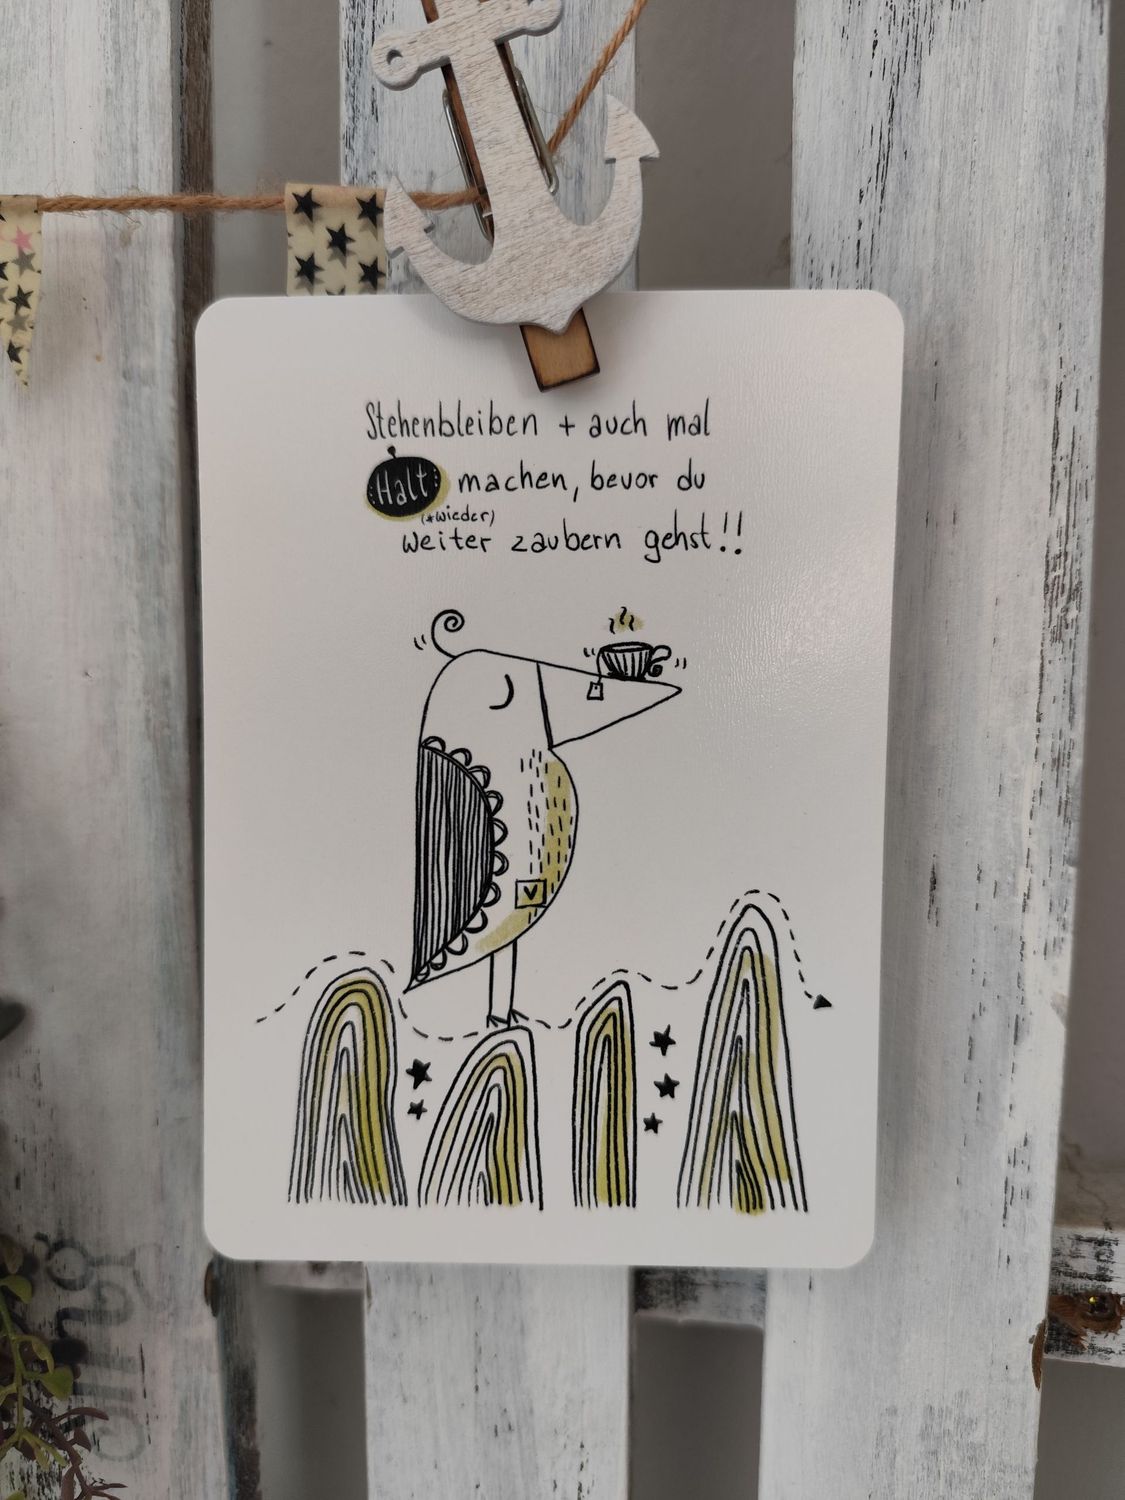 Stehenbleiben + auch mal
Halt machen, bevor du
(*wieder)
weiter zaubern gehst!!
v